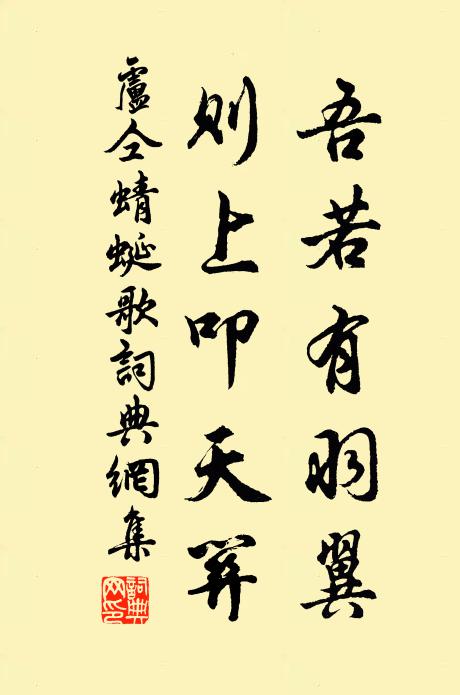 吾若有羽翼
則上叩天關
盧仝蜻蜓歌詞典網集
詞典
网印